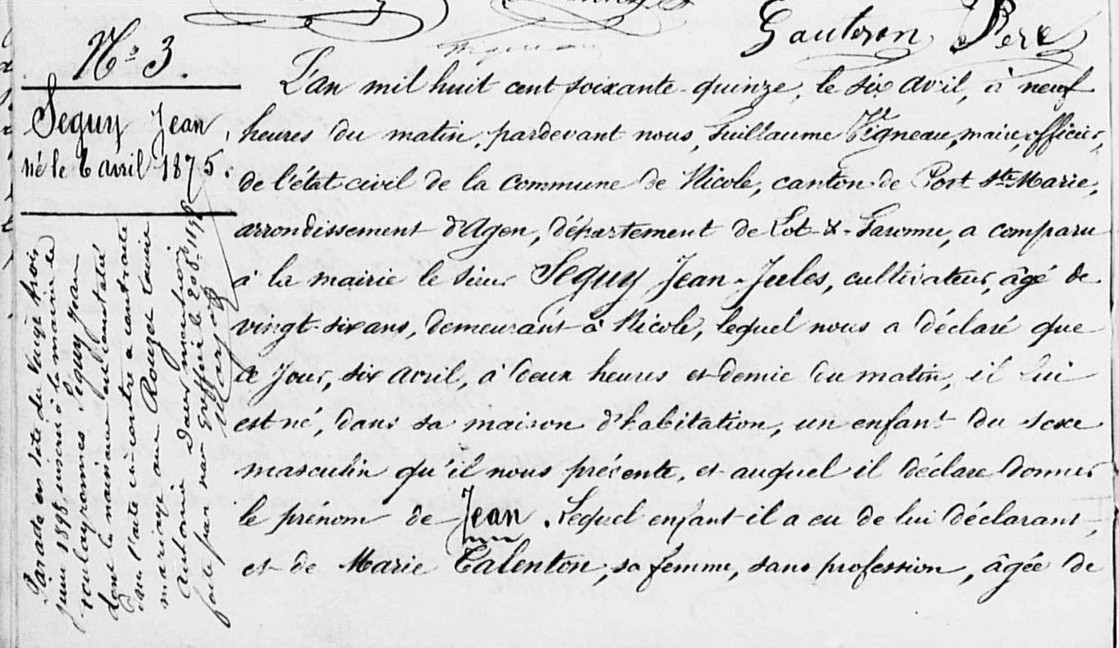 Gauteron Père
N° 3.
Seguy Jean,
né le 6 avril 1875.
L'an mil huit cent soixante-quinze, le six avril, à neuf
heures du matin, pardevant nous, Guillaume Vigneau, maire, officier,
de l'état civil de la commune de Nicole, canton de Port Ste Marie,
arrondissement d'Agen, département de Lot-&-Garonne, a comparu
à la mairie le sieur Seguy Jean-Jules, cultivateur, âgé de
vingt-six ans, demeurant à Nicole, lequel nous a déclaré que
ce jour, six avril, à deux heures et demie du matin, il lui
est né, dans sa maison d'habitation, un enfant du sexe
masculin qu'il nous présente, et auquel il déclare donner
le prénom de Jean. Lequel enfant il a eu de lui déclarant,
et de Marie Talenton, sa femme, sans profession, âgée de
Par acte en date du vingt trois
juin 1898, inscrit à la mairie de
Seguy Jean
dont la naissance est constatée
en l'acte ci-contre a contracté
mariage avec Rouzet Louise
Antonia
fait par nar Greffier le